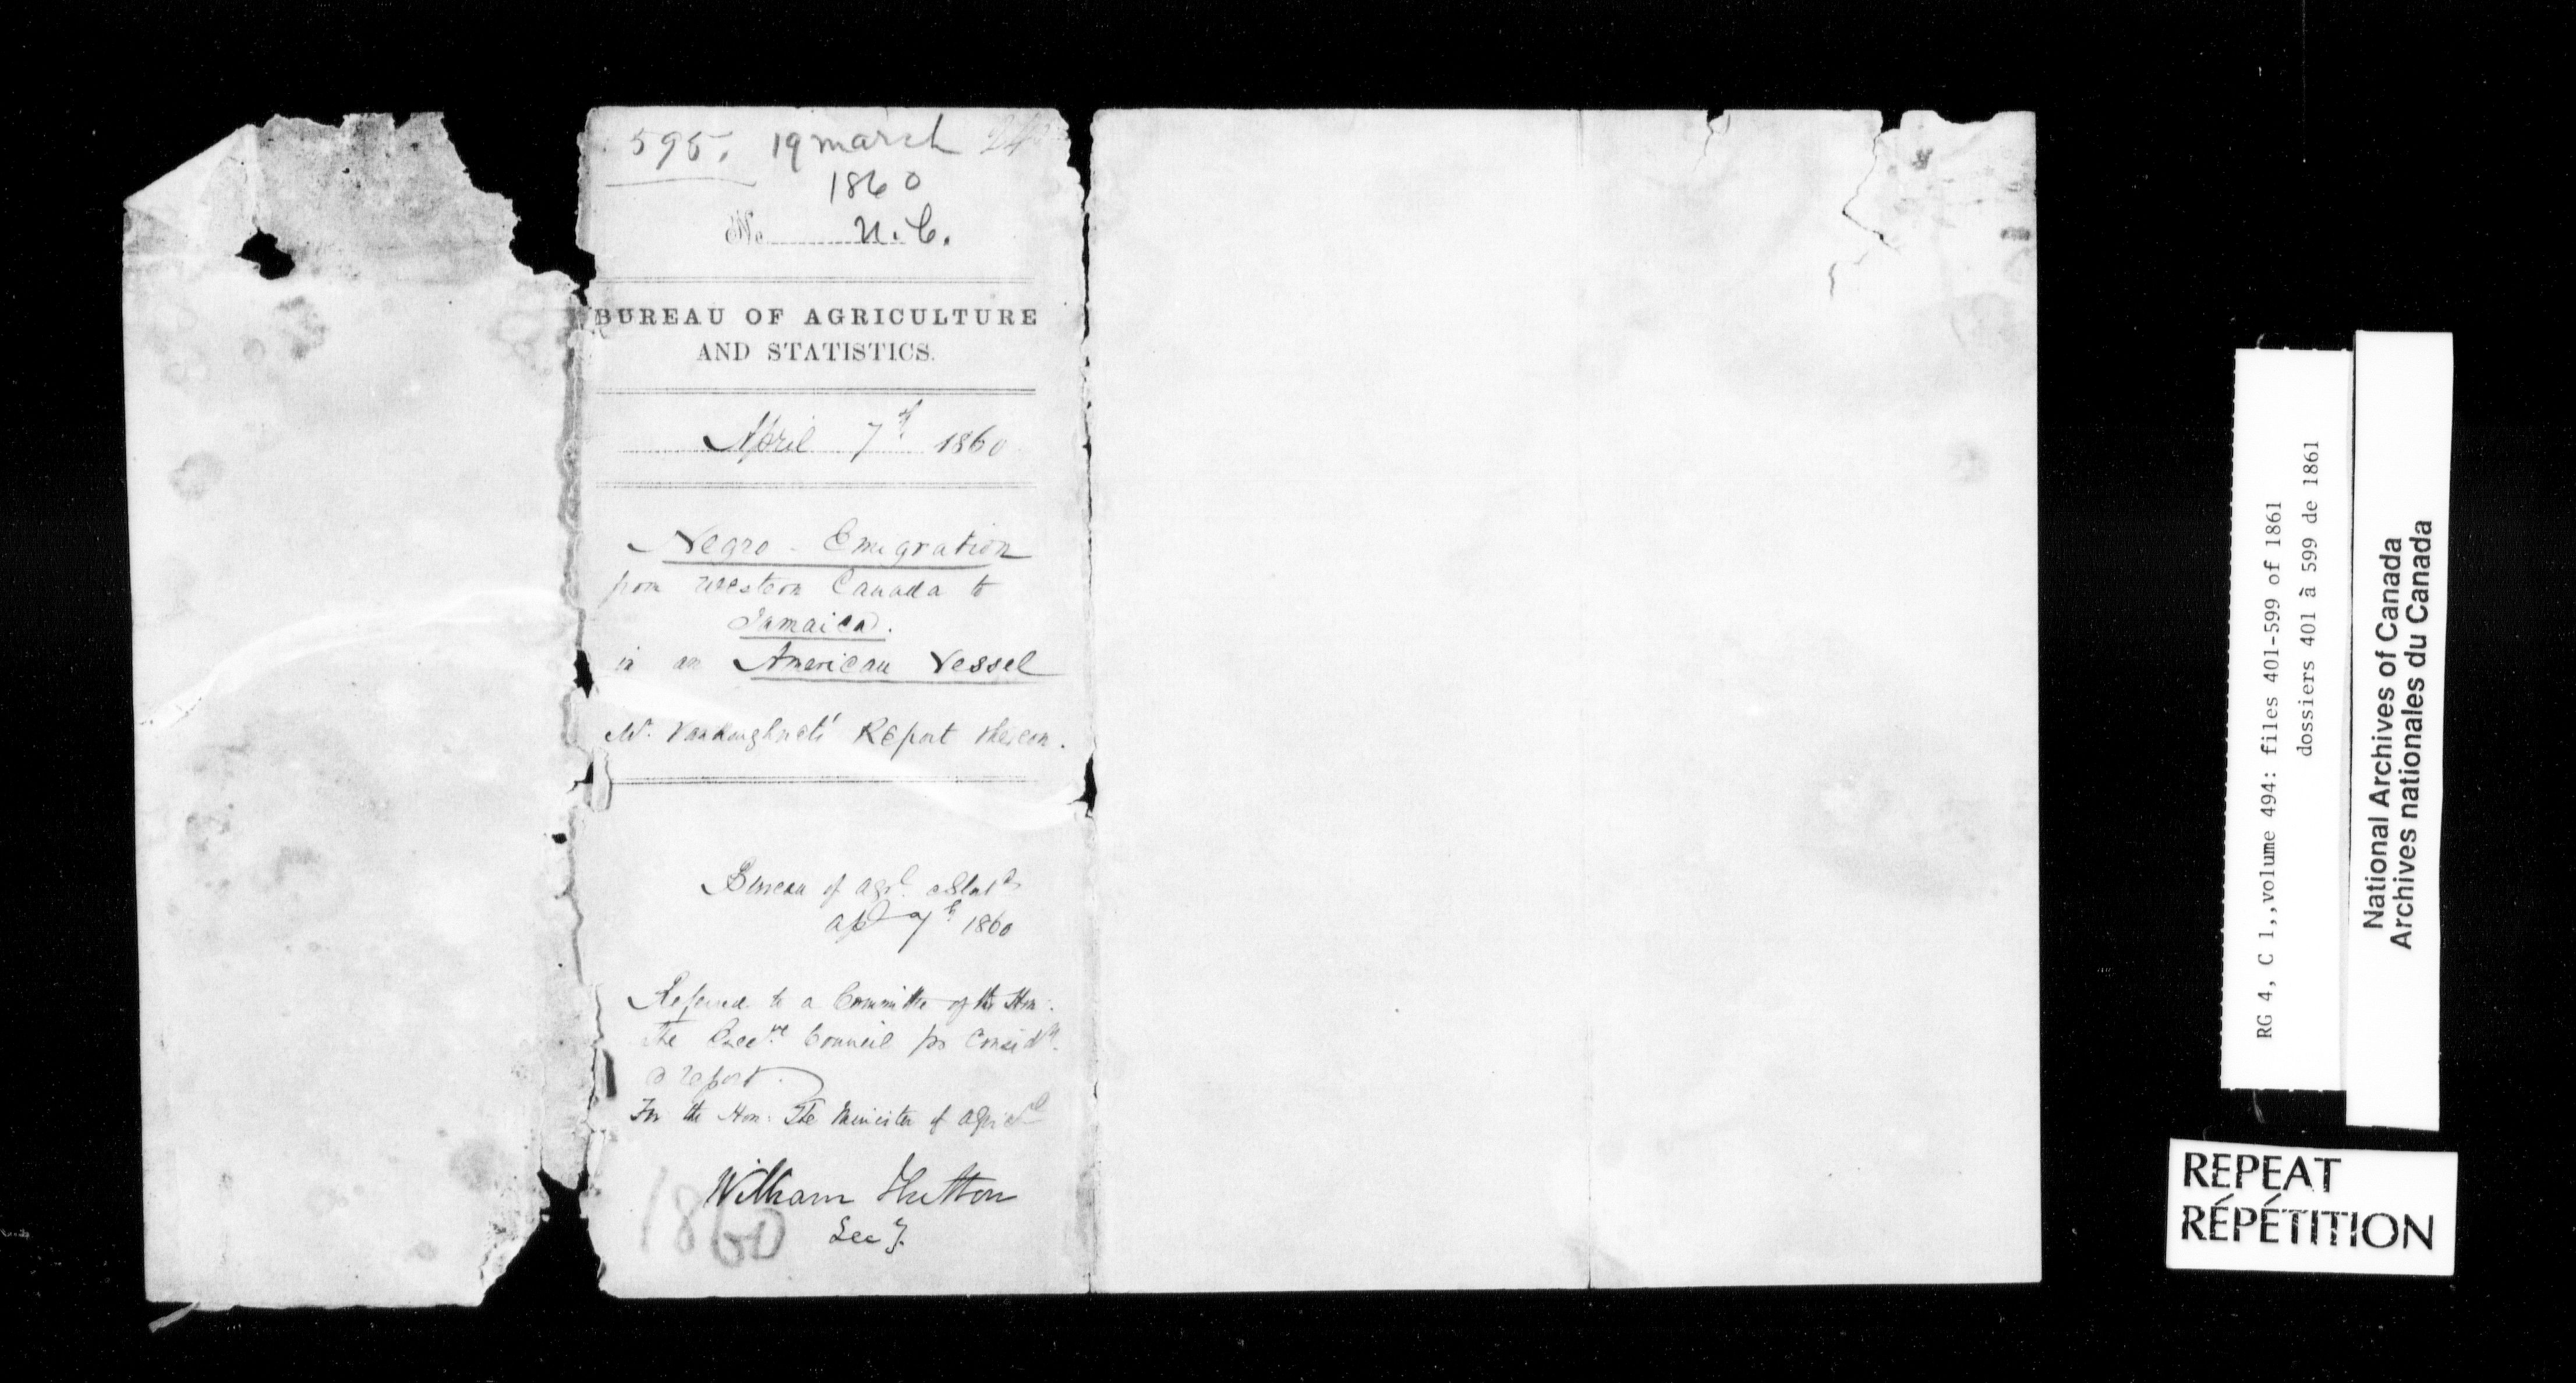 595. 19 march
1860
No. U. C.
BUREAU OF AGRICULTURE
AND STATISTICS.
April 7th 1860
Negro - Emigration
from Western Canada to
Jamaica.
in an American Vessel
Mr. Vankoughnets' Report thereon.
Bureau of Agrl. & Stats
Apl 7th 1860
Referred to a Committee of the Hon:
the Execve. Council for Considn.
& report.
For the Hon: The Minister of Agricl
William Hutton
Secy.
1860
RG 4, C 1,,volume 494: files 401-599 of 1861
dossiers 401 à 599 de 1861
National Archives of Canada
Archives nationales du Canada
REPEAT
RÉPÉTITION